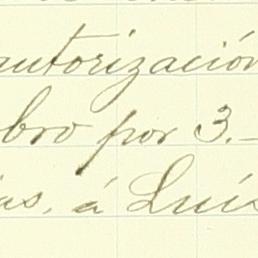 autorización
bro por 3.-
as, á Luis